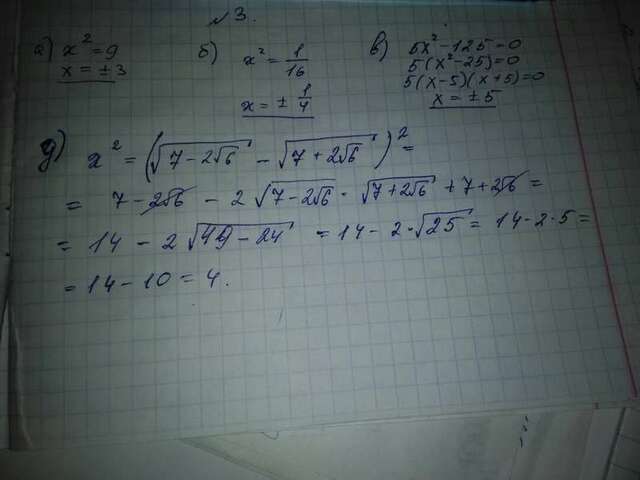 №3.
а) x² = 9
x = ± 3
б) x² = 1/16
x = ± 1/4
в) 5x² - 125 = 0
5(x² - 25) = 0
5(x - 5)(x + 5) = 0
x = ± 5
д) x² = (√(7 - 2√6) - √(7 + 2√6))² =
= 7 - 2√6 - 2 √(7 - 2√6) · √(7 + 2√6) + 7 + 2√6 =
= 14 - 2√(49 - 24) = 14 - 2·√25 = 14 - 2·5 =
= 14 - 10 = 4.